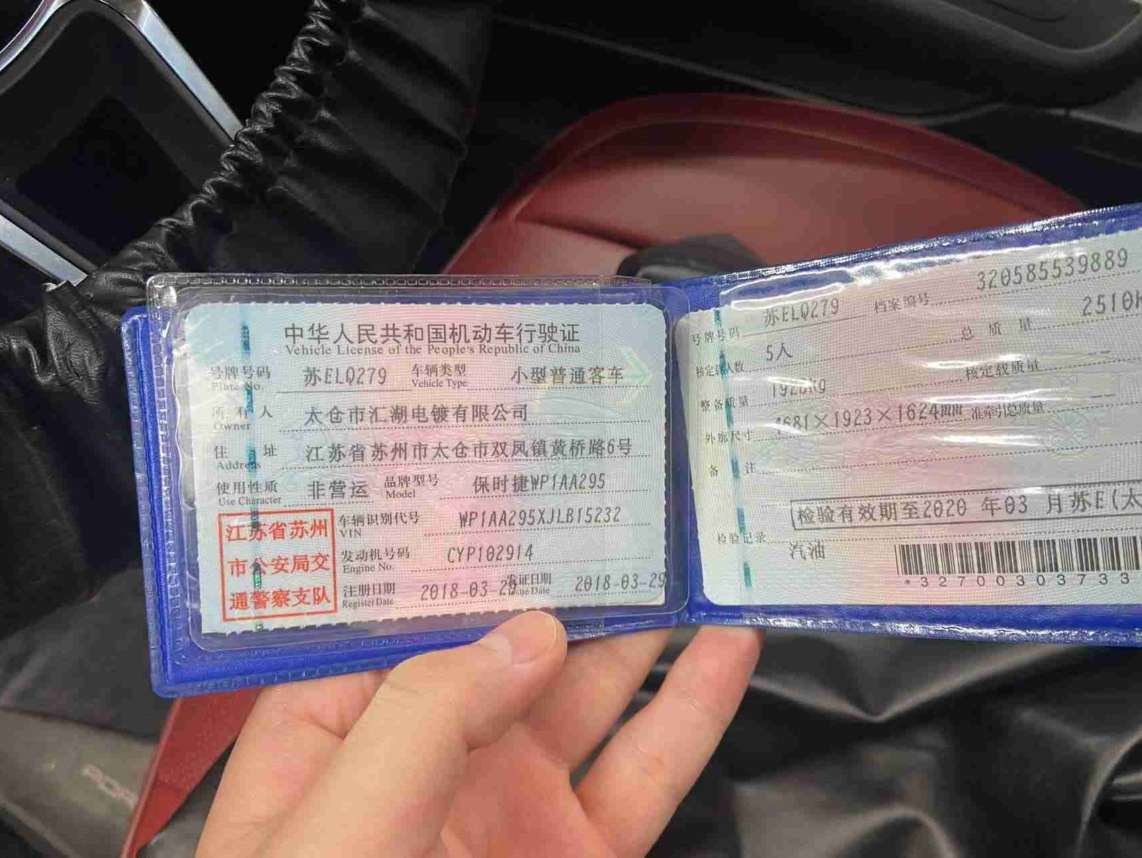 中华人民共和国机动车行驶证
Vehicle License of the People's Republic of China
号牌号码 Plate No. 苏ELQ279 车辆类型 Vehicle Type 小型普通客车
所有人 Owner 太仓市汇湖电镀有限公司
住址 Address 江苏省苏州市太仓市双凤镇黄桥路6号
使用性质 Use Character 非营运 品牌型号 Model 保时捷WP1AA295
江苏省苏州
市公安局交
通警察支队
车辆识别代号 VIN WP1AA295XJLB15232
发动机号码 Engine No. CYP102914
注册日期 Register Date 2018-03-29 发证日期 Issue Date 2018-03-29
号牌号码 苏ELQ279 档案编号 320585539889
核定载人数 5人 总质量 2510
整备质量 1920kg 核定载质量 --
外廓尺寸 4681×1923×1624mm 准牵引总质量 --
备注
检验有效期至2020 年03 月苏E(太
检验记录
汽油
*327003037 33